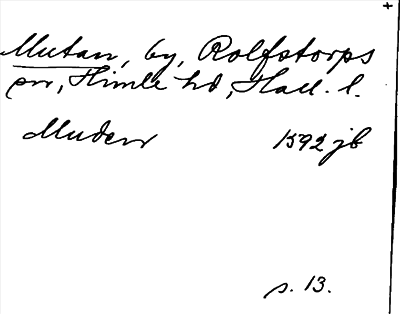 Mutan, by, Rolfstorps
sn, Himle hd, Hall. l.
Muden 1592 jb
s. 13.